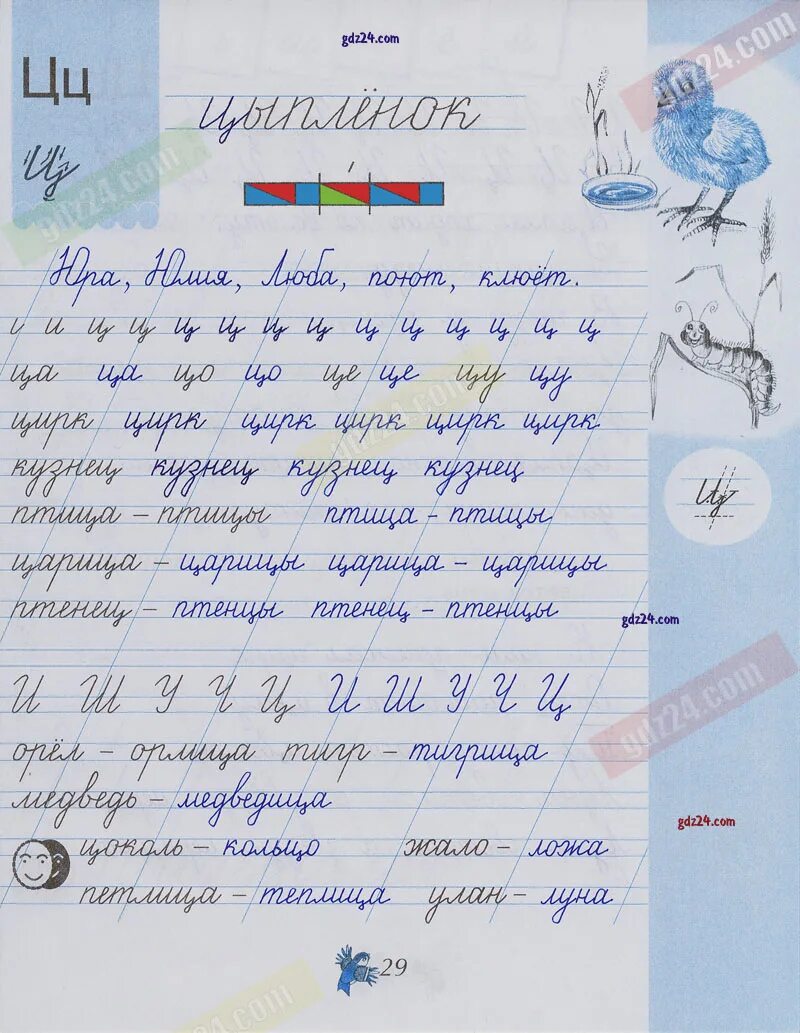 gdz24.com
Цц
Цц
цыплёнок
Юра, Юлия, Люба, поют, клюёт.
и и ц ц ц ц ц ц ц ц ц ц ц ц
ца ца цо цо це це цу цу
цирк цирк цирк цирк цирк цирк
кузнец кузнец кузнец кузнец
Цц
птица – птицы птица – птицы
царица – царицы царица – царицы
птенец – птенцы птенец – птенцы
gdz24.com
И Ш У Ч Ц И Ш У Ч Ц
орёл – орлица тигр – тигрица
gdz24.com
медведь – медведица
gdz24.com
цоколь – кольцо жало – ложа
петлица – теплица улан – луна
29